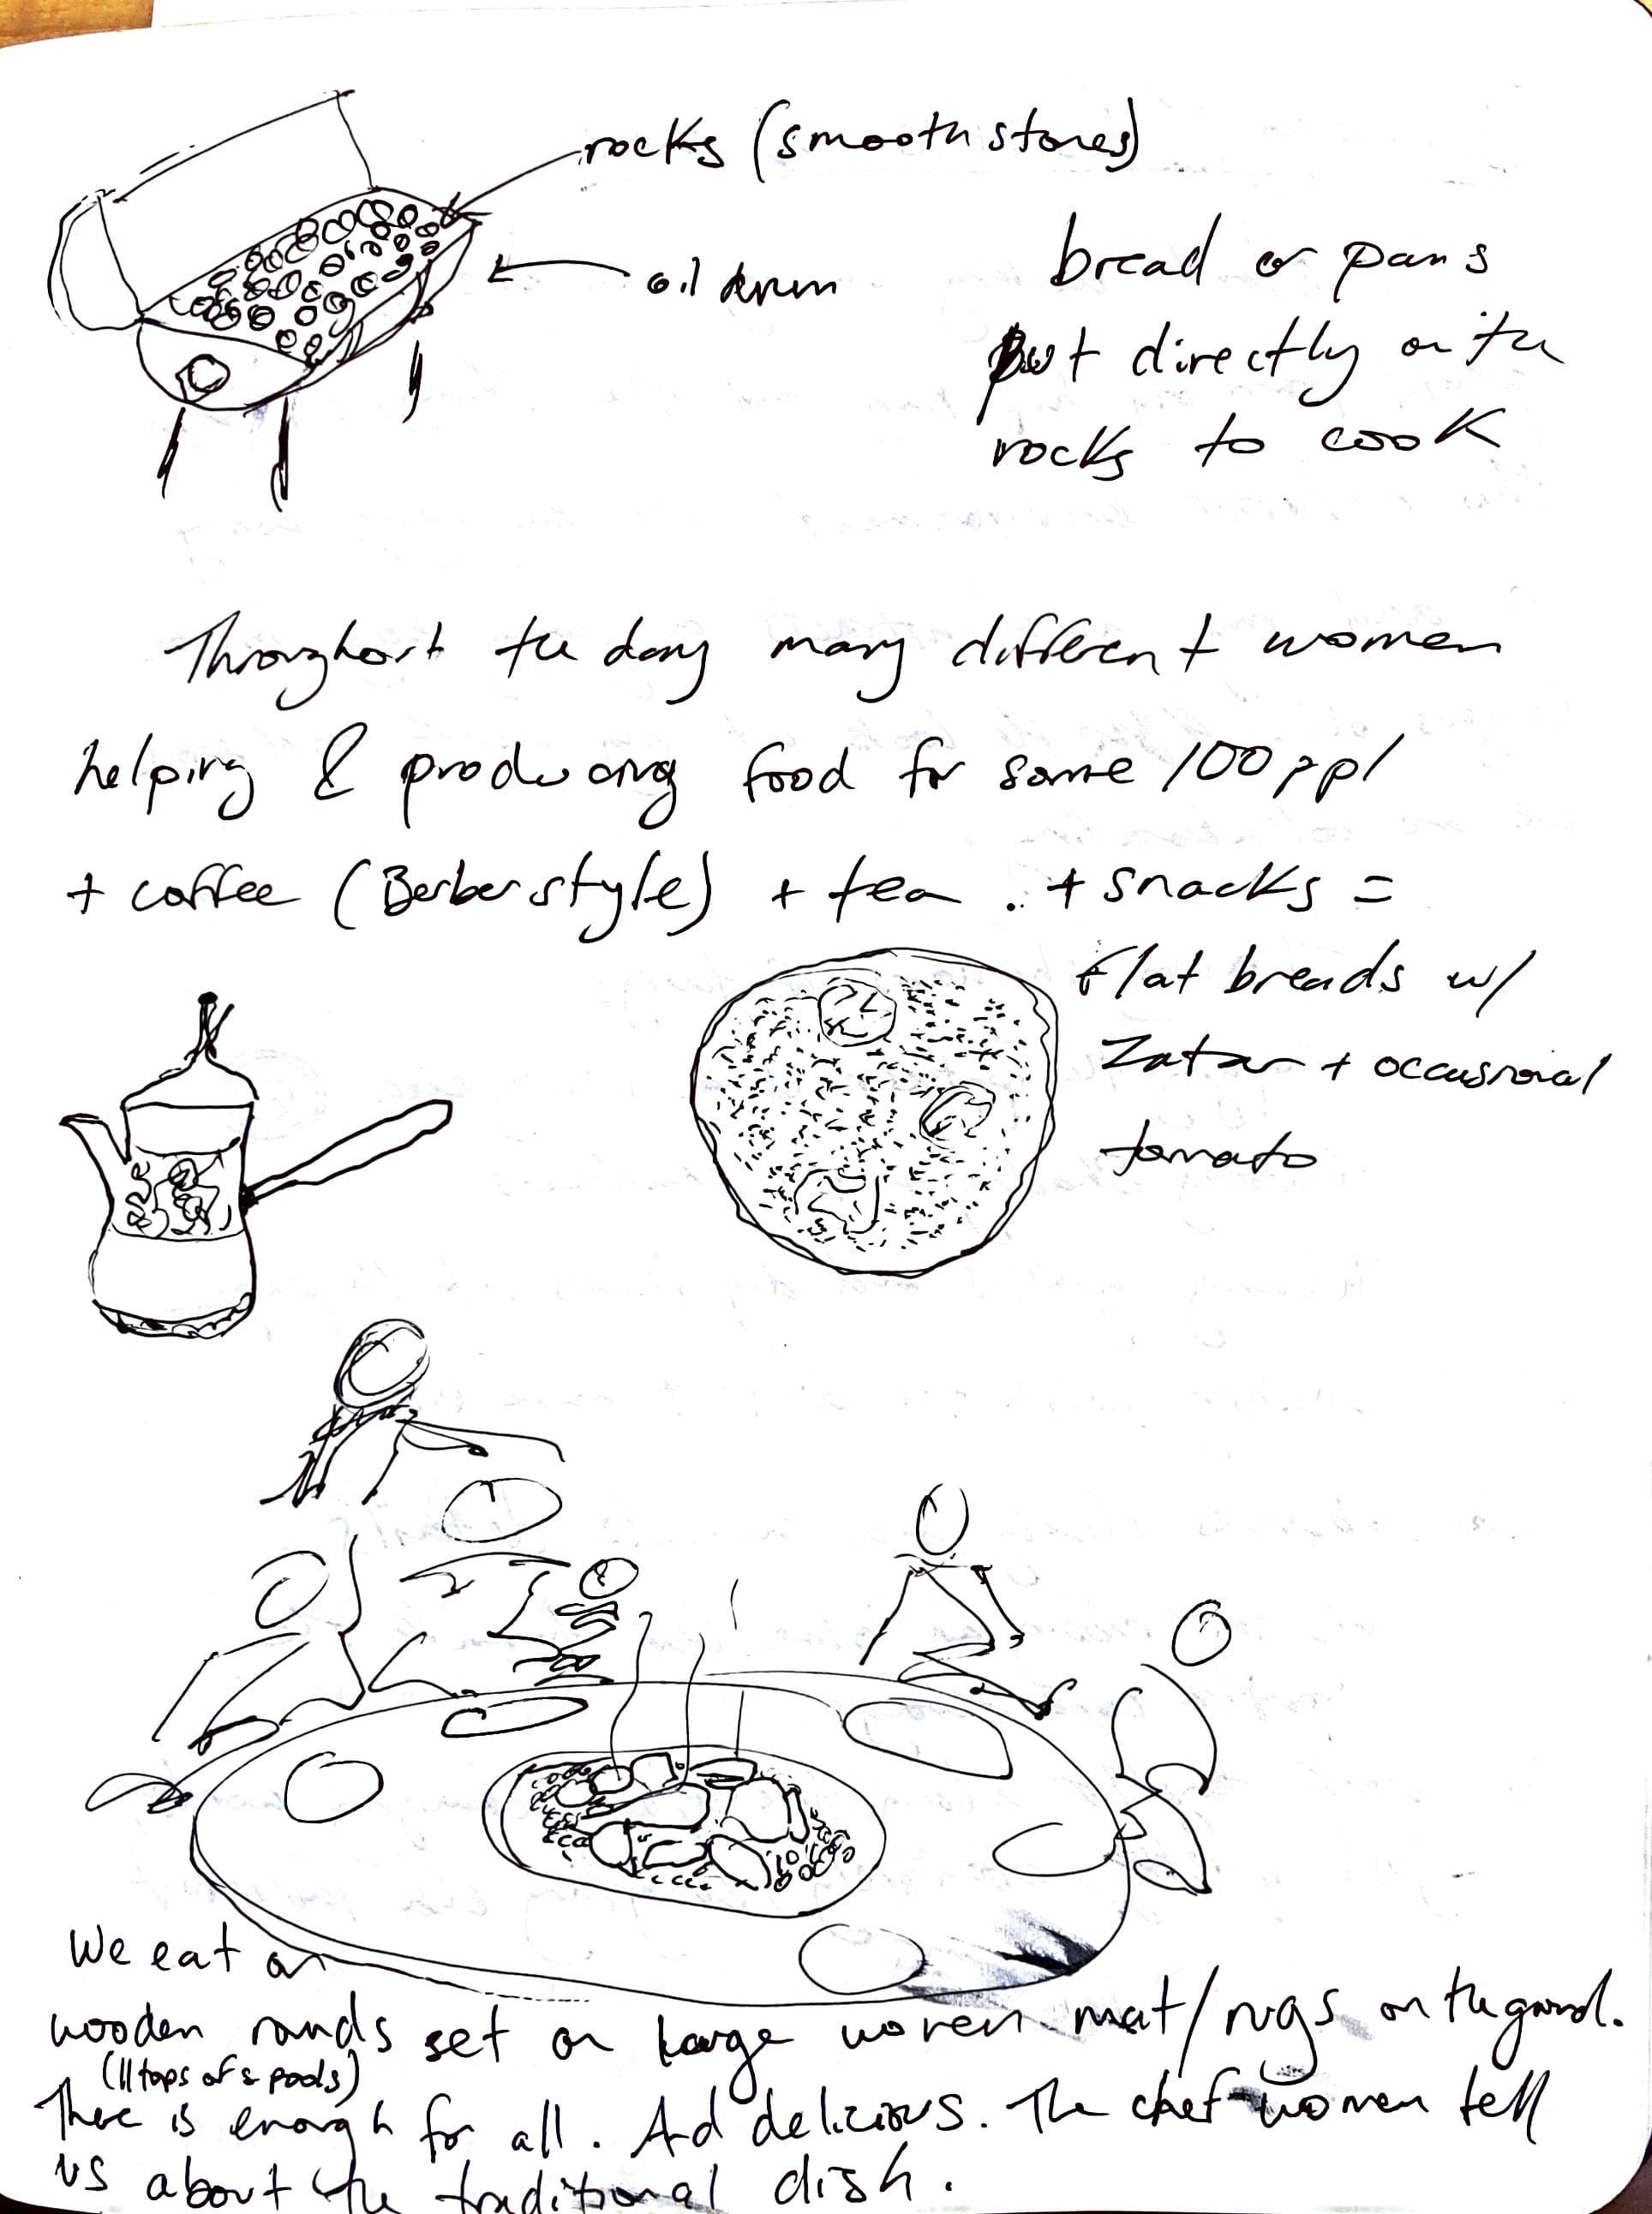 rocks (smooth stones)
oil drum
bread or pans
put directly on the
rocks to cook
Throughout the day many different women
helping & producing food for some 100 ppl
+ coffee (Berber style) + tea . + snacks =
flat breads w/
Zatar + occasional
tomato
We eat on
wooden rounds set on large woven mat/rugs on the ground.
(ll tops of spools)
There is enough for all. And delicious. The chef women tell
us about the traditional dish.